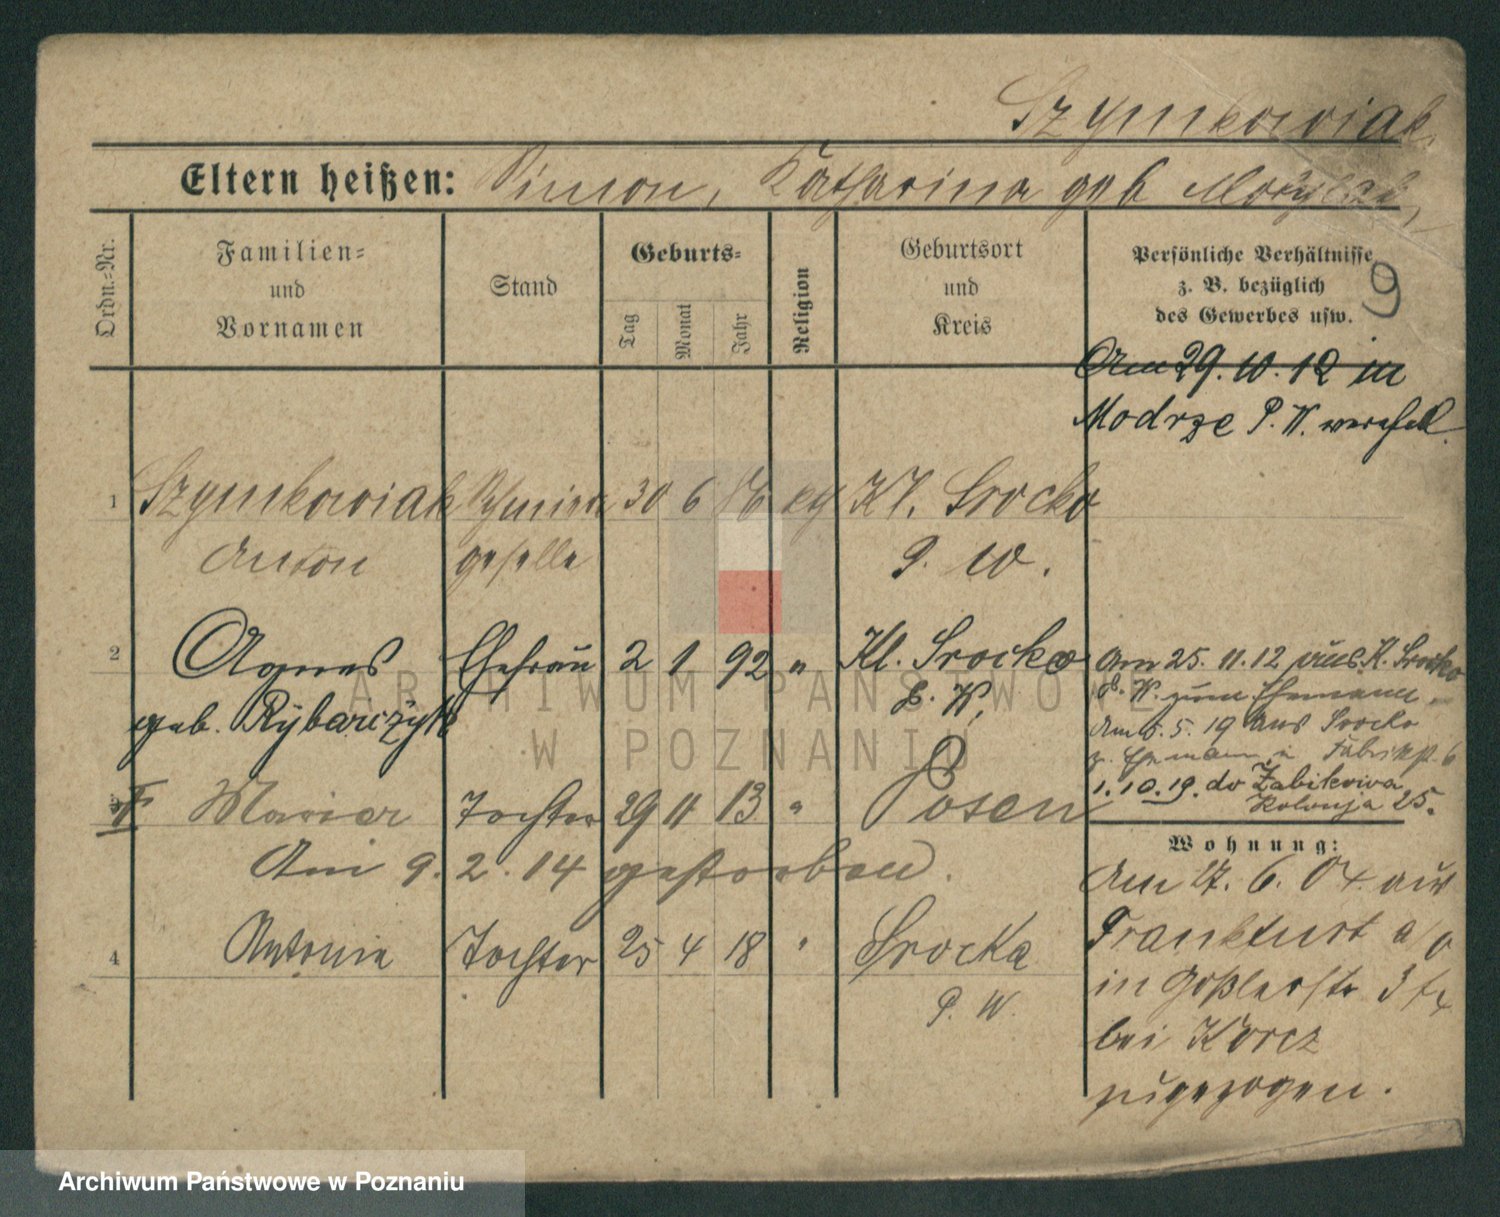 Szymkowiak
Eltern heißen: Simon, Katharina geb
Ordn.-Nr.
Familien-
und
Vornamen
Stand
Geburts-
Tag
Monat
Jahr
Religion
Geburtsort
und
Kreis
Persönliche Verhältnisse
z. B. bezüglich
des Gewerbes usw.
9
Am 29. 10. 12 in
Modrze P. W. verehel.
1 Szymkowiak 30 6 kth Kl. Srocko
Anton geselle P. W.
2 Agnes Ehefrau 2 1 92 " Kl. Srocko
geb. Rybarczyk P. W.
Am 25. 11. 12 aus Kl. Srocko
P. W. zum Ehemann
Am 5. 19 aus Srocko
z. Ehemann in
1. 10. 19. do Żabikowa
Kolonja 25.
3 † Maria Tochter 29 11 13 " Posen
Am 9. 2. 14 gestorben.
4 Antonie Tochter 25 4 18 " Srocka
P. W.
Wohnung:
Am 17. 6. 04 aus
Frankfurt a/o
in Goßlerstr 3
bei Korcz
zugezogen.
ARCHIWUM PAŃSTWOWE
W POZNANIU
Archiwum Państwowe w Poznaniu